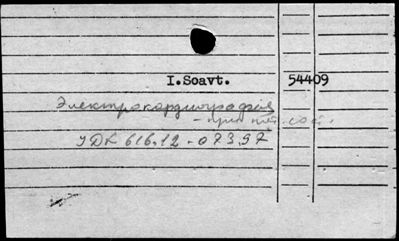 I.Soavt. 54409
Электрокардиография
- при пат. сост.
УДК 616.12-073.97